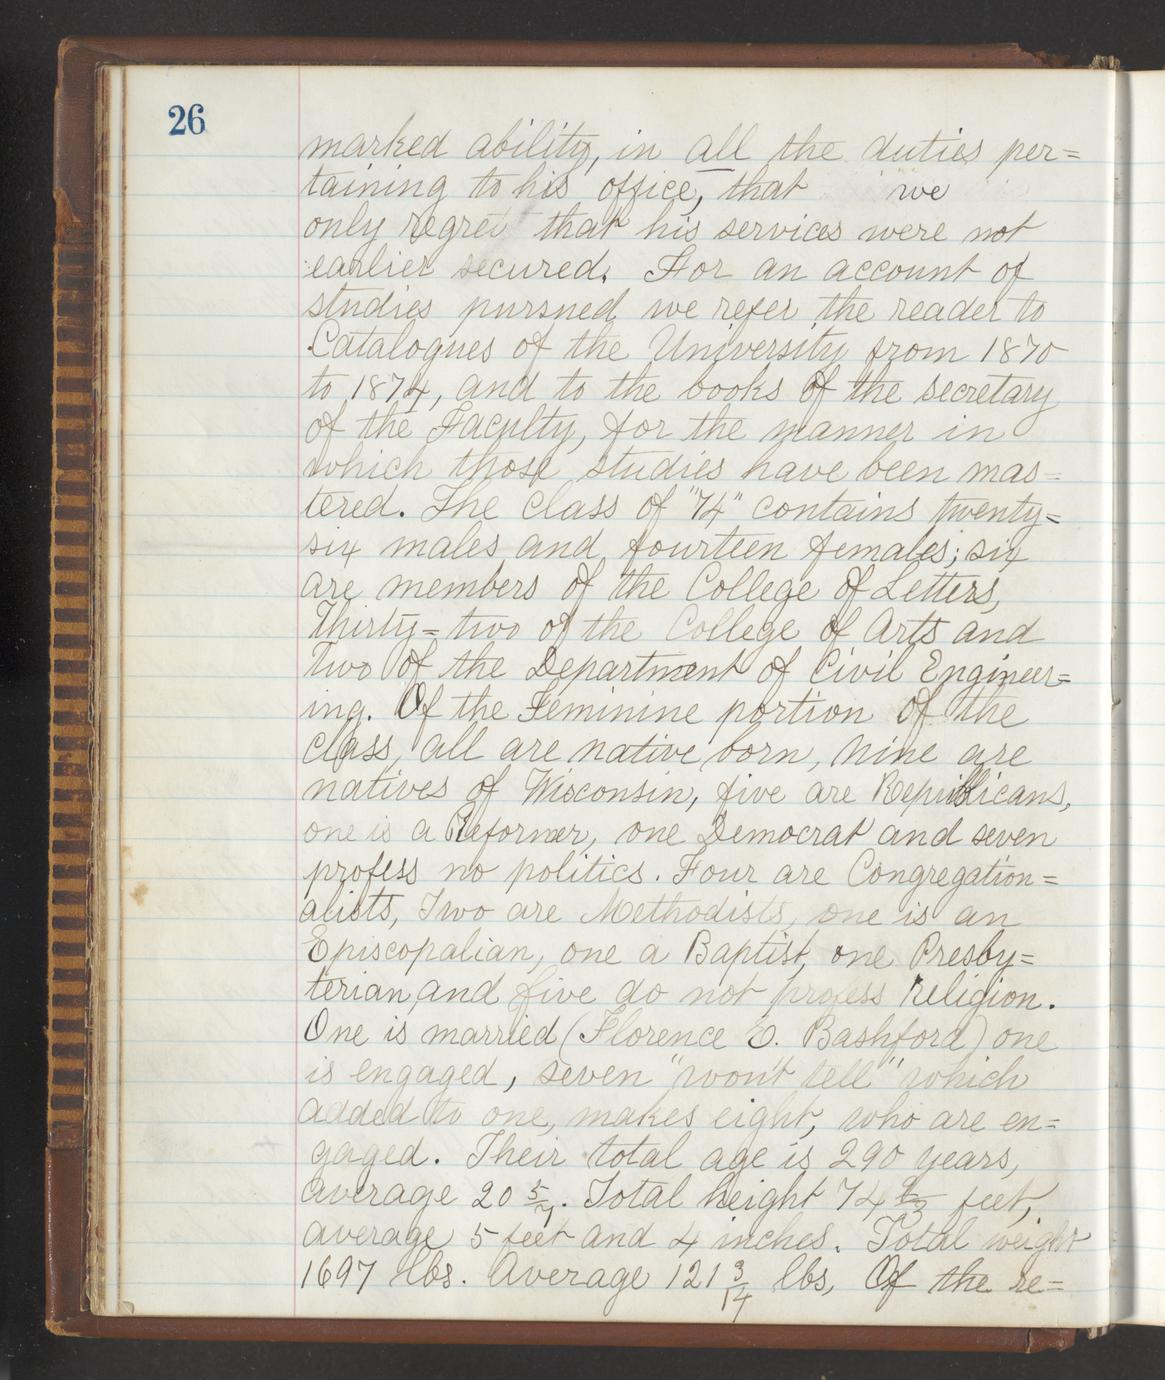 26
marked ability, in all the duties per=
taining to his office, that we
only regret that his services were not
earlier secured. For an account of
studies pursued we refer the reader to
Catalogues of the University from 1870
to 1874, and to the books of the secretary
of the Faculty, for the manner in
which those studies have been mas=
tered. The Class of "74" contains twenty=
six males and fourteen females; six
are members of the College of Letters,
Thirty=two of the College of Arts and
Two of the Department of Civil Engineer=
ing. Of the Feminine portion of the
class, all are native born, Nine are
natives of Wisconsin, five are Republicans,
one is a Reformer, one Democrat and seven
profess no politics. Four are Congregation=
alists, Two are Methodists, one is an
Episcopalian, one a Baptist, one Presby=
terian, and five do not profess Religion.
One is married (Florence E. Bashford) one
is engaged, seven "wont tell" which
added to one, makes eight, who are en=
gaged. Their total age is 290 years,
average 20 5/7. Total height 74 2/3 feet,
average 5 feet and 4 inches. Total weight
1697 lbs. Average 121 3/14 lbs, Of the re=